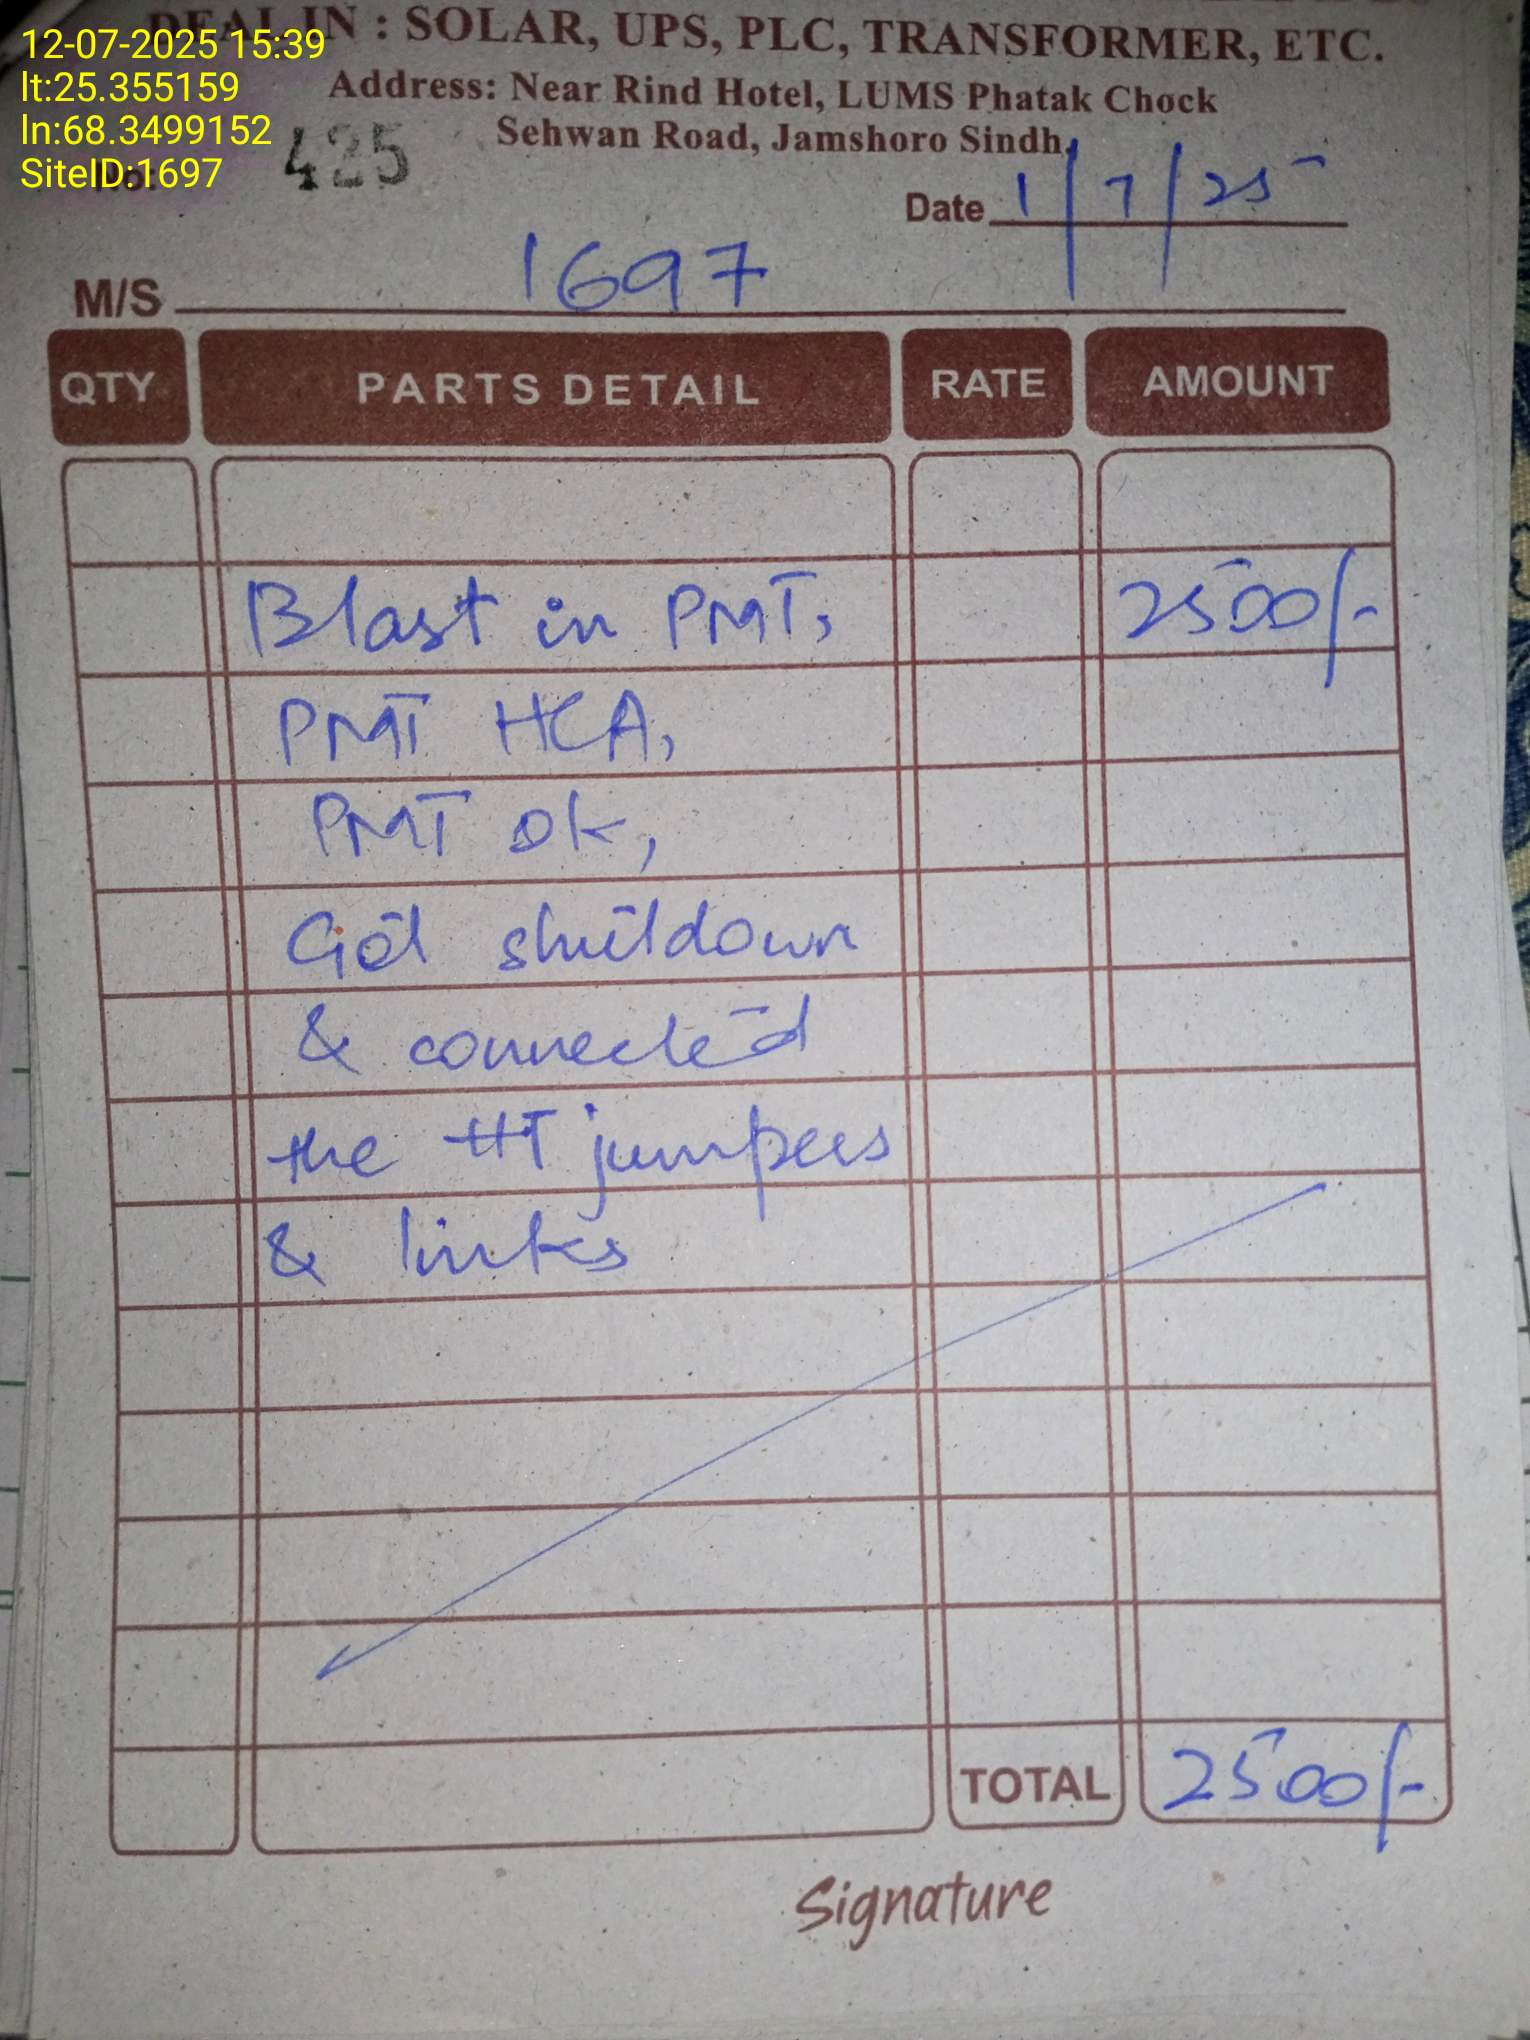 12-07-2025 15:39
lt:25.355159
ln:68.3499152
SiteID:1697
DEAL IN : SOLAR, UPS, PLC, TRANSFORMER, ETC.
Address: Near Rind Hotel, LUMS Phatak Chock
Sehwan Road, Jamshoro Sindh.
No: 425
Date 1/7/25
M/S 1697
QTY PARTS DETAIL RATE AMOUNT
Blast in PMT, 2500/-
PMT HCA,
PMT ok,
Got shutdown
& connected
the HT jumpers
& links
TOTAL 2500/-
Signature